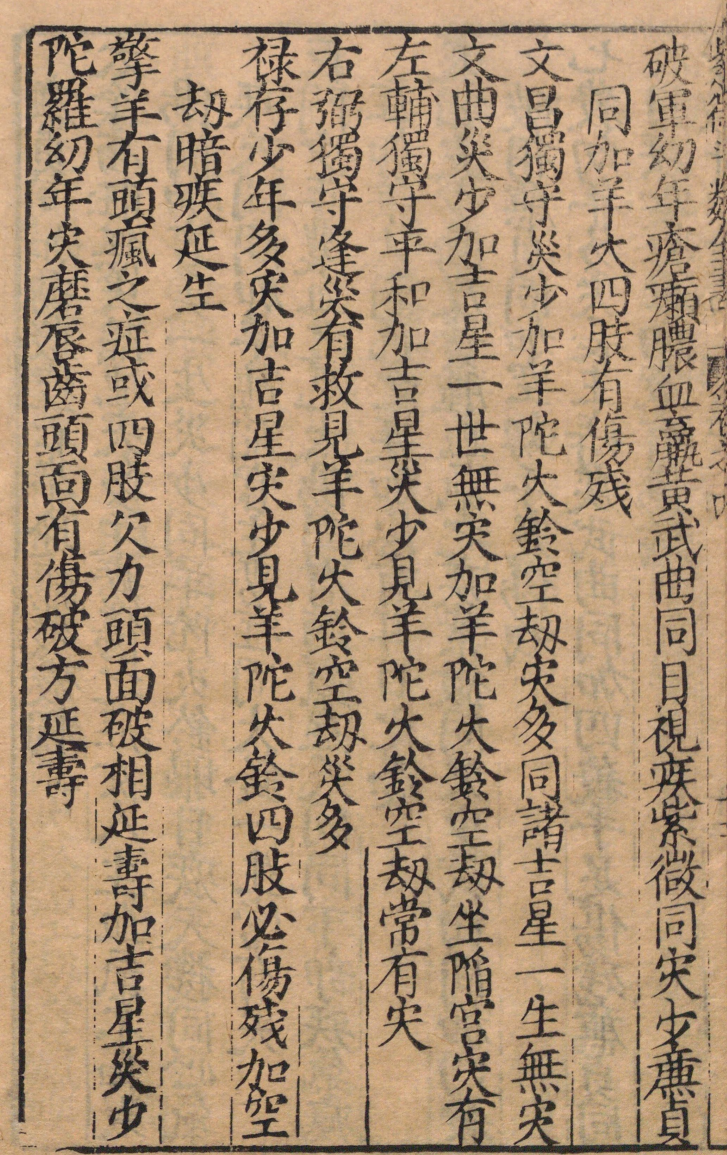 破軍幼年瘡癩膿血羸黃武曲同目視疾紫微同灾少廉貞
同加羊火四肢有傷殘
文昌獨守災少加羊陀火鈴空劫灾多同諸吉星一生無灾
文曲災少加吉星一世無灾加羊陀火鈴空劫坐陷宮灾有
左輔獨守平和加吉星災少見羊陀火鈴空劫常有灾
右弼獨守逢災有救見羊陀火鈴空劫災多
禄存少年多灾加吉星灾少見羊陀火鈴四肢必傷殘加空
劫暗疾延生
擎羊有頭瘋之症或四肢欠力頭面破相延壽加吉星災少
陀羅幼年灾磨唇齒頭面有傷破方延壽